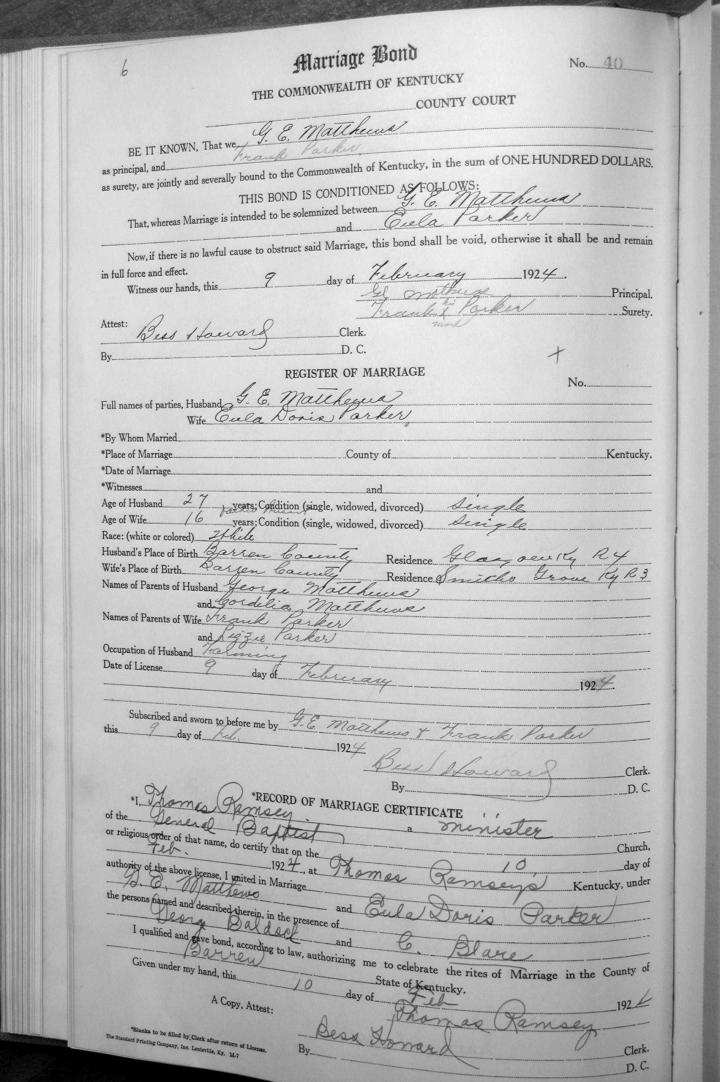 6
Marriage Bond
No. 40
THE COMMONWEALTH OF KENTUCKY
COUNTY COURT
BE IT KNOWN, That we G. E. Matthews
as principal, and Frank Parker
as surety, are jointly and severally bound to the Commonwealth of Kentucky, in the sum of ONE HUNDRED DOLLARS.
THIS BOND IS CONDITIONED AS FOLLOWS:
That, whereas Marriage is intended to be solemnized between G. E. Matthews
and Eula Parker
Now, if there is no lawful cause to obstruct said Marriage, this bond shall be void, otherwise it shall be and remain
in full force and effect.
Witness our hands, this 9 day of February 1924.
Principal.
Frank his x mark Parker Surety.
Attest: Bess Howard Clerk.
By D. C.
REGISTER OF MARRIAGE
No.
Full names of parties, Husband G. E. Matthews
Wife Eula Doris Parker
*By Whom Married
*Place of Marriage County of Kentucky.
*Date of Marriage
*Witnesses and
Age of Husband 27 years; Condition (single, widowed, divorced) single
Age of Wife 16 years; Condition (single, widowed, divorced) single
Race: (white or colored) White
Husband's Place of Birth Barren County Residence Glasgow Ky R4
Wife's Place of Birth Barren County Residence Smiths Grove Ky R3
Names of Parents of Husband George Matthews
and Cordelia Matthews
Names of Parents of Wife Frank Parker
and Lizzie Parker
Occupation of Husband Farming
Date of License 9 day of February 1924.
Subscribed and sworn to before me by G. E. Matthews & Frank Parker
this 9 day of Feb. 1924
Bess Howard Clerk.
By D. C.
*RECORD OF MARRIAGE CERTIFICATE
*I, Thomas Ramsey a minister
of the General Baptist Church,
or religious order of that name, do certify that on the 10, day of
Feb. 1924, at Thomas Ramseys Kentucky, under
authority of the above license, I united in Marriage
G. E. Matthews and Eula Doris Parker
the persons named and described therein, in the presence of
George Baldock and C. Blare
I qualified and gave bond, according to law, authorizing me to celebrate the rites of Marriage in the County of
Barren State of Kentucky.
Given under my hand, this 10 day of Feb 1924
Thomas Ramsey
A Copy, Attest: Bess Howard Clerk.
By D. C.
*Blanks to be filled by Clerk after return of License.
The Standard Printing Company, Inc. Louisville, Ky. M-7